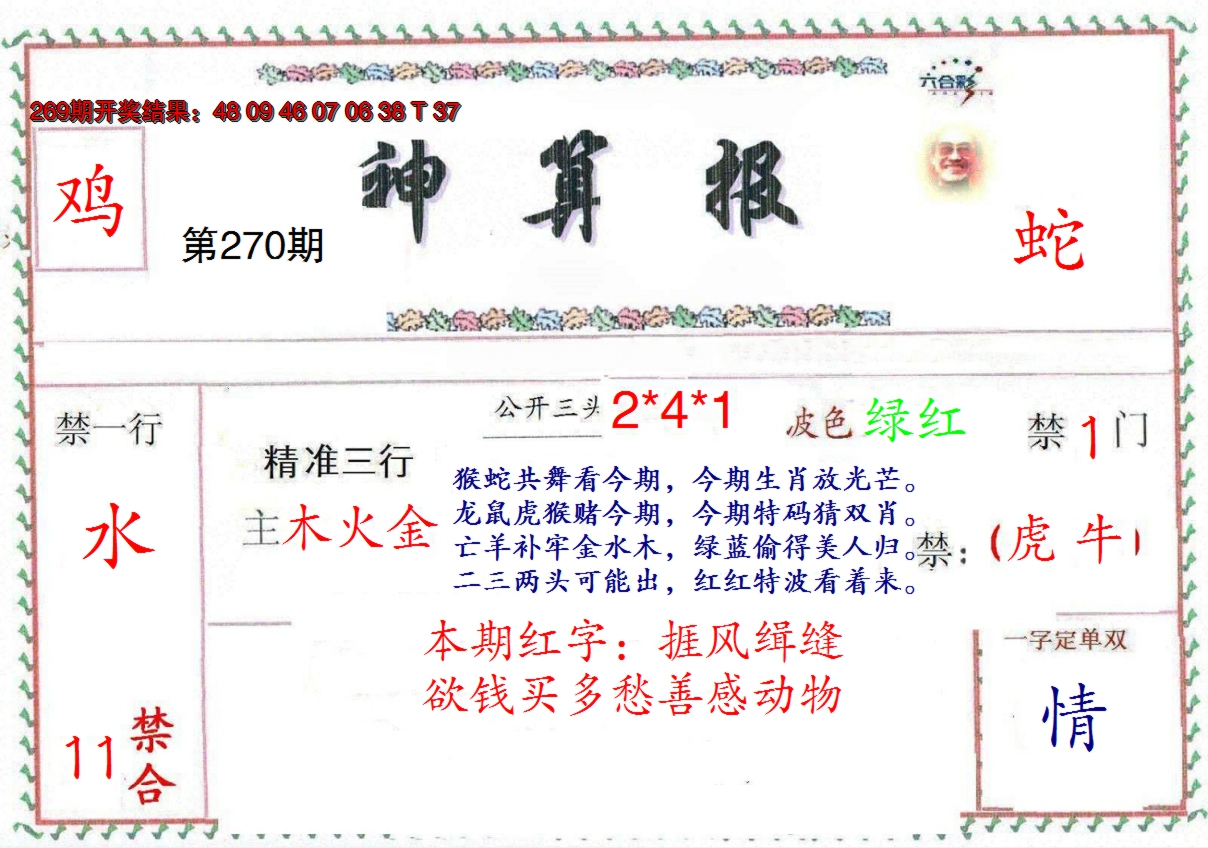 六合彩
269期开奖结果：48 09 46 07 06 38 T 37
鸡
神算报
第270期
蛇
公开三头 2*4*1
波色 绿红
禁一行
禁1门
精准三行
主木火金
水
猴蛇共舞看今期，今期生肖放光芒。
龙鼠虎猴赌今期，今期特码猜双肖。
亡羊补牢金水木，绿蓝偷得美人归。
二三两头可能出，红红特波看着来。
禁：（虎 牛）
本期红字：捱风缉缝
欲钱买多愁善感动物
一字定单双
情
11禁合